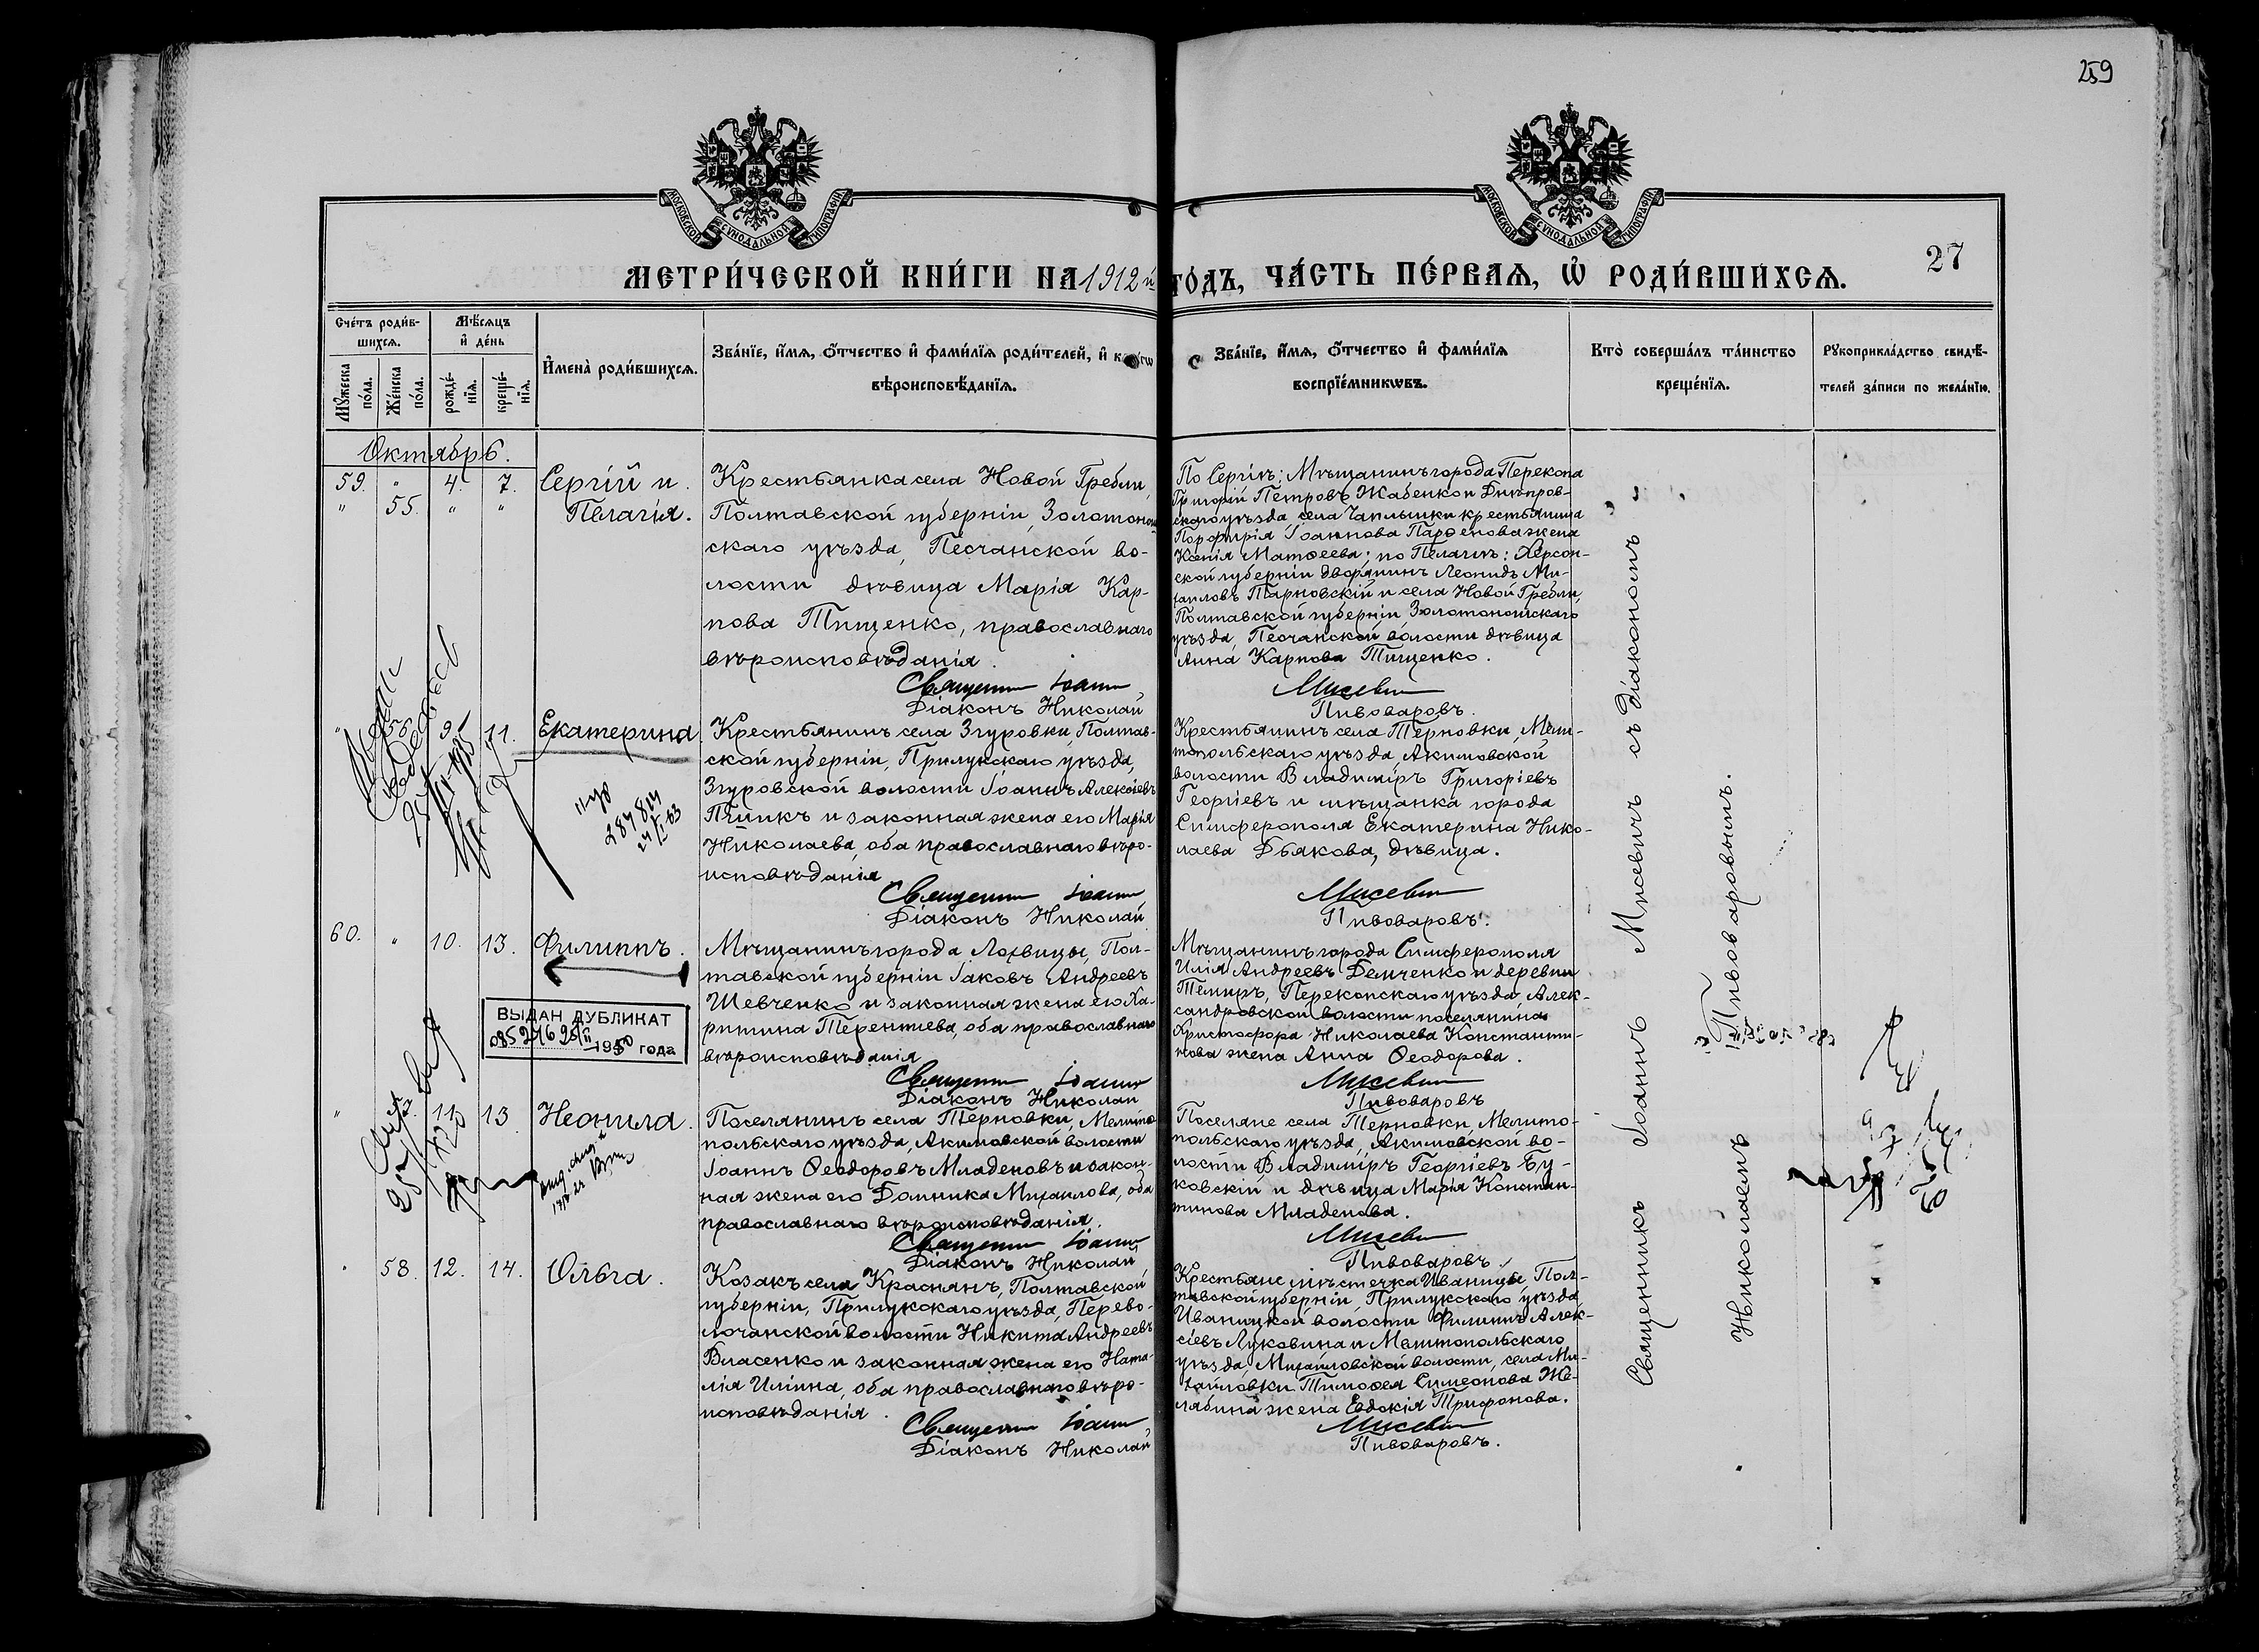 259
МОСКОВСКОЙ СѴНОДАЛЬНОЙ ТИПОГРАФІИ
МОСКОВСКОЙ СѴНОДАЛЬНОЙ ТИПОГРАФІИ
27
МЕТРИ́ЧЕСКОЙ КНИ́ГИ НА 1912 й ГО́ДЪ, ЧА́СТЬ ПЕ́РВАѦ, Ѡ҆ РОДИ́ВШИХСѦ.
Сче́тъ роди́в-
шихсѧ.
Мꙋ́жеска по́ла.
Же́нска по́ла.
Мѣ́сѧцъ
и҆ де́нь
рожде́-
нїѧ.
креще́-
нїѧ.
И҆мена̀ роди́вшихсѧ.
Зва́нїе, и҆́мѧ, ѻ҆́тчество и҆ фами́лїѧ роди́телей, и҆
вѣроисповѣ́данїѧ.
Зва́нїе, и҆́мѧ, ѻ҆́тчество и҆ фами́лїѧ
воспрїе́мникѡвъ.
Кто̀ соверша́лъ та́инство
креще́нїѧ.
Рꙋкоприкла́дство свидѣ́-
телей за́писи по жела́нїю.
Октябрь.
59. " 4. 7. Сергій и
" 55. " " Пелагія.
Крестьянка села Новой Гребли,
Полтавской губерніи, Золотонош-
скаго уѣзда, Песчанской во-
лости дѣвица Марія Кар-
пова Тищенко, православнаго
вѣроисповѣданія.
Священн Іоанн
Діаконъ Николай
По Сергіѣ: Мѣщанинъ города Перекопа
Григорій Петровъ Жабенко и Днѣпров-
скаго уѣзда, села Чаплынки крестьянина
Порфирія Іоаннова Парѳенова жена
Ксенія Матѳеева; по Пелагіѣ: Херсон-
ской губерніи дворянинъ Леонидъ Ми-
хаиловъ Тарновскій и села Новой Гребли,
Полтавской губерніи Золотоношскаго
уѣзда, Песчанской волости дѣвица
Анна Карпова Тищенко.
Мисевич
Пивоваровъ.
" 56. 9. 11. Екатерина
Крестьянинъ села Згуровки, Полтав-
ской губерніи, Прилукскаго уѣзда,
Згуровской волости Іоаннъ Алексіевъ
и законная жена его Марія
Николаева, оба православнаго вѣро-
исповѣданія
Священн Іоанн
Діаконъ Николай
Крестьянинъ села Терновки, Мели-
топольскаго уѣзда, Акимовской
волости Владиміръ Григоріевъ
Георгіевъ и мѣщанка города
Симферополя Екатерина Нико-
лаева Дьякова, дѣвица.
Мисевич
Пивоваровъ.
60. " 10. 13. Филиппъ.
ВЫДАН ДУБЛИКАТ
1950 года
Мѣщанинъ города Лохвицы, Пол-
тавской губерніи Іаковъ Андреевъ
Шевченко и законная жена его Ха-
ритина Терентіева, оба православнаго
вѣроисповѣданія
Священн Іоанн
Діаконъ Николай
Мѣщанинъ города Симферополя
Илія Андреевъ Демченко и деревни
Темиръ, Перекопскаго уѣзда, Алек-
сандровской волости поселянина
Христофора Николаева Константи-
нова жена Анна Ѳеодорова.
Мисевич
Пивоваровъ
" 11. 13 Неонила.
Поселянинъ села Терновки, Мелито-
польскаго уѣзда, Акимовской волости
Іоаннъ Ѳеодоровъ Младеновъ и закон-
ная жена его Домника Михаилова, оба
православнаго вѣроисповѣданія.
Священн Іоанн
Діаконъ Николай
Поселяне села Терновки, Мелито-
польскаго уѣзда, Акимовской во-
лости Владиміръ Георгіевъ Бу-
ковскій и дѣвица Марія Констан-
тинова Младенова.
Мисевич
Пивоваровъ.
" 58. 12. 14. Ольга.
Козакъ села Краснянъ, Полтавской
губерніи, Прилукскаго уѣзда, Перево-
лочанской волости Никита Андреевъ
Власенко и законная жена его Ната-
лія Иліина, оба православнаго вѣро-
исповѣданія.
Священн Іоанн
Діаконъ Николай
Крестьяне мѣстечка Иваницы, Пол-
тавской губерніи, Прилукскаго уѣзда
Иваницкой волости Филиппъ Алек-
сіевъ Луковина и Мелитопольскаго
уѣзда, Михайловской волости, села Ми-
хайловки Тимоѳея Симеонова Же-
лябина жена Евдокія Трифонова.
Мисевич
Пивоваровъ.
Священникъ Іоаннъ Мисевичъ съ діакономъ
Николаемъ Пивоваровымъ.